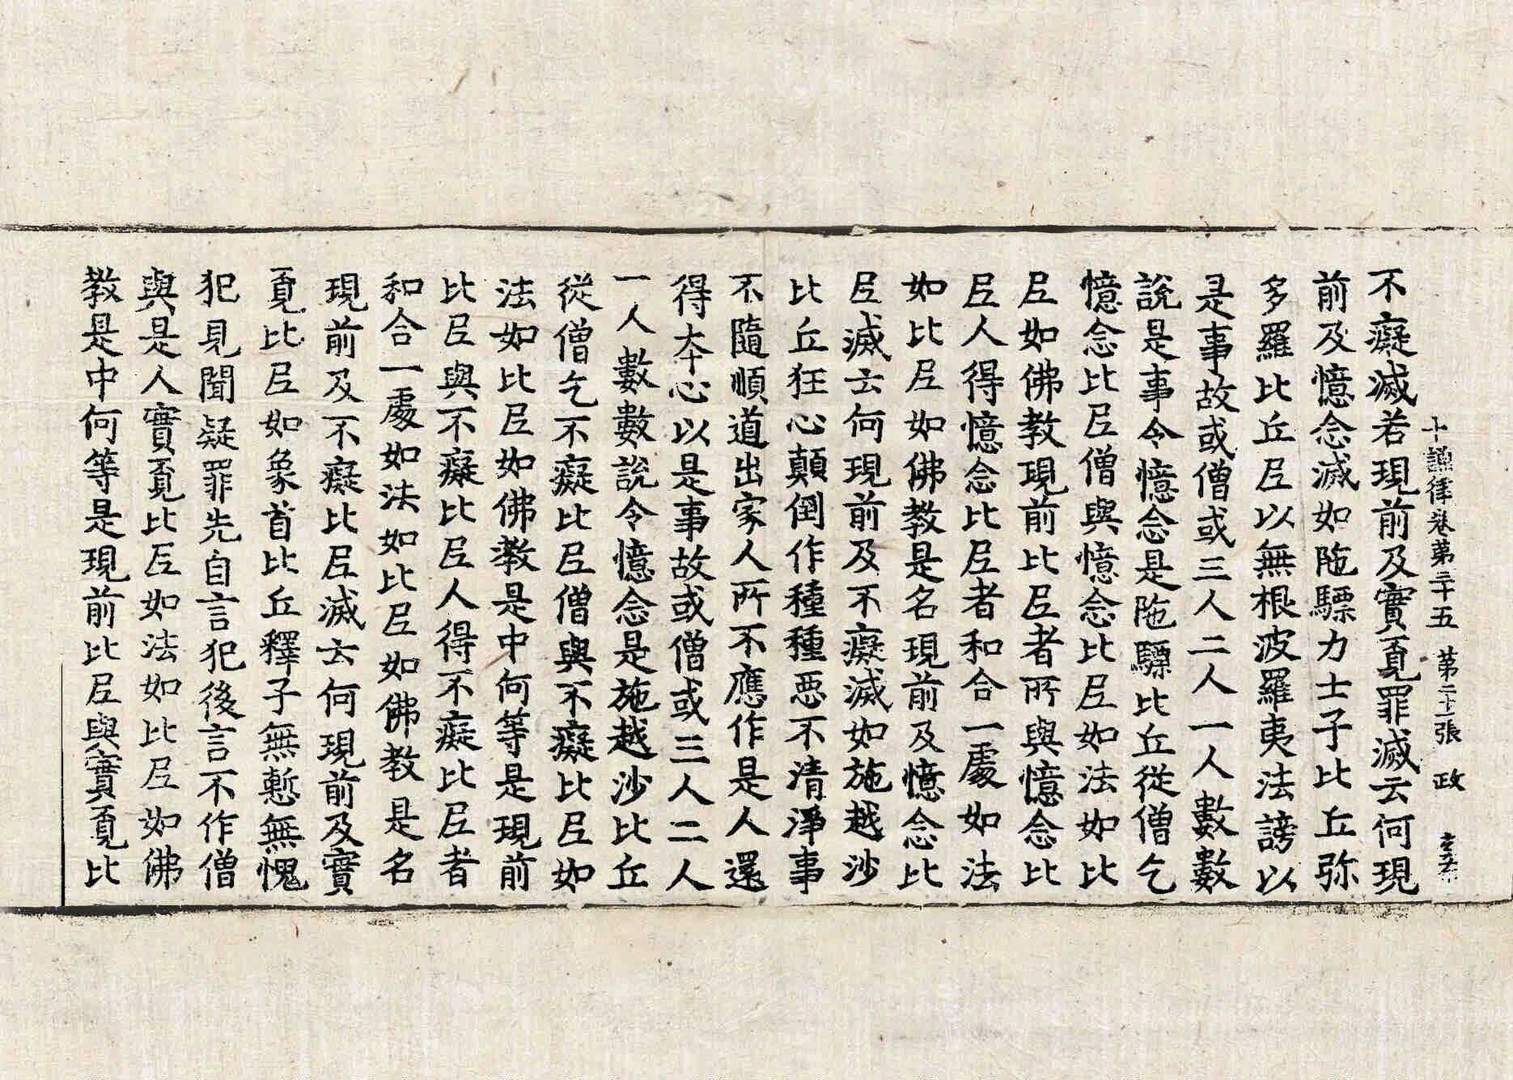 十誦律卷第三十五 第二十一張 政
不癡滅若現前及實覓罪滅云何現
前及憶念滅如陁驃力士子比丘弥
多羅比丘尼以無根波羅夷法謗以
是事故或僧或三人二人一人數數
說是事令憶念是陁驃比丘從僧乞
憶念比尼僧與憶念比尼如法如比
尼如佛教現前比尼者所與憶念比
尼人得憶念比尼者和合一處如法
如比尼如佛教是名現前及憶念比
尼滅云何現前及不癡滅如施越沙
比丘狂心顛倒作種種惡不清淨事
不隨順道出家人所不應作是人還
得本心以是事故或僧或三人二人
一人數數說令憶念是施越沙比丘
從僧乞不癡比尼僧與不癡比尼如
法如比尼如佛教是中何等是現前
比尼與不癡比尼人得不癡比尼者
和合一處如法如比尼如佛教是名
現前及不癡比尼滅云何現前及實
覓比尼如象首比丘釋子無慙無愧
犯見聞疑罪先自言犯後言不作僧
與是人實覓比尼如法如比尼如佛
教是中何等是現前比尼與實覓比